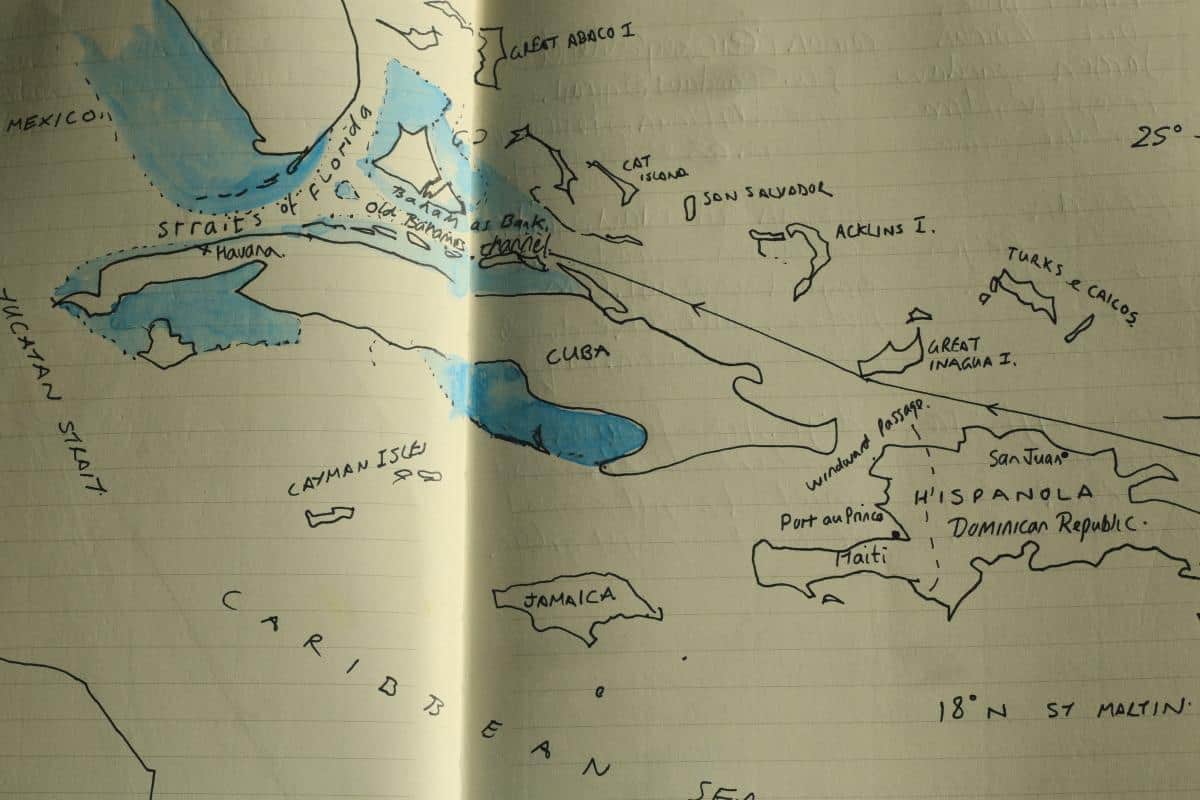 GREAT ABACO I
MEXICO
25°
Straits of Florida
CAT
ISLAND
SAN SALVADOR
Bahamas Bank
Old Bahamas Channel
ACKLINS I.
Havana
TURKS & CAICOS
YUCATAN STRAIT
CUBA
GREAT
INAGUA I.
Windward Passage
CAYMAN ISLES
San Juan
HISPANOLA
Port au Prince
Dominican Republic
Haiti
JAMAICA
CARIBBEAN
18° N ST MALTIN
SEA